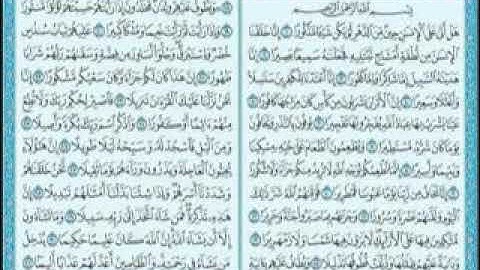 بسم الله الرحمن الرحيم
هل أتى على الإنسان حين من الدهر لم يكن شيئا مذكورا إنا خلقنا
الإنسان من نطفة أمشاج نبتليه فجعلناه سميعا بصيرا إنا
هديناه السبيل إما شاكرا وإما كفورا إنا أعتدنا للكافرين سلاسلا
وأغلالا وسعيرا إن الأبرار يشربون من كأس كان مزاجها كافورا
عينا يشرب بها عباد الله يفجرونها تفجيرا يوفون بالنذر ويخافون
يوما كان شره مستطيرا ويطعمون الطعام على حبه مسكينا
ويتيما وأسيرا إنما نطعمكم لوجه الله لا نريد منكم جزاء ولا شكورا
إنا نخاف من ربنا يوما عبوسا قمطريرا فوقاهم الله شر ذلك
اليوم ولقاهم نضرة وسرورا وجزاهم بما صبروا جنة وحريرا
متكئين فيها على الأرائك لا يرون فيها شمسا ولا زمهريرا
ويطوف عليهم ولدان مخلدون إذا رأيتهم حسبتهم لؤلؤا منثورا
وإذا رأيت ثم رأيت نعيما وملكا كبيرا عاليهم ثياب سندس
خضر وإستبرق وحلوا أساور من فضة وسقاهم ربهم شرابا
طهورا إن هذا كان لكم جزاء وكان سعيكم مشكورا إنا
نحن نزلنا عليك القرآن تنزيلا فاصبر لحكم ربك ولا تطع
منهم آثما أو كفورا واذكر اسم ربك بكرة وأصيلا
ومن الليل فاسجد له وسبحه ليلا طويلا إن هؤلاء
يحبون العاجلة ويذرون وراءهم يوما ثقيلا نحن خلقناهم
وشددنا أسرهم وإذا شئنا بدلنا أمثالهم تبديلا إن
هذه تذكرة فمن شاء اتخذ إلى ربه سبيلا وما تشاءون
إلا أن يشاء الله إن الله كان عليما حكيما يدخل
من يشاء في رحمته والظالمين أعد لهم عذابا أليما